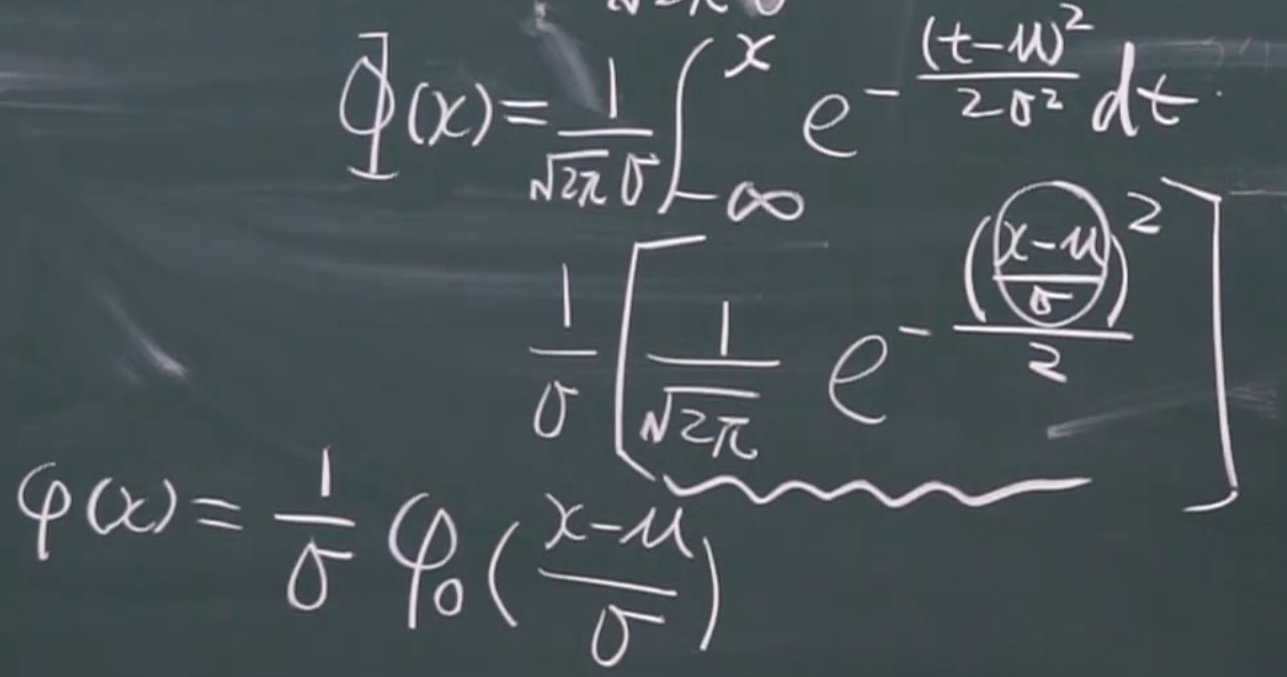 Φ(x)=\frac{1}{\sqrt{2π}σ}∫_{-∞}^{x} e^{-\frac{(t-μ)^2}{2σ^2}} dt
\frac{1}{σ}[\frac{1}{\sqrt{2π}} e^{-\frac{(\frac{x-μ}{σ})^2}{2}}]
φ(x)=\frac{1}{σ}φ_0(\frac{x-μ}{σ})